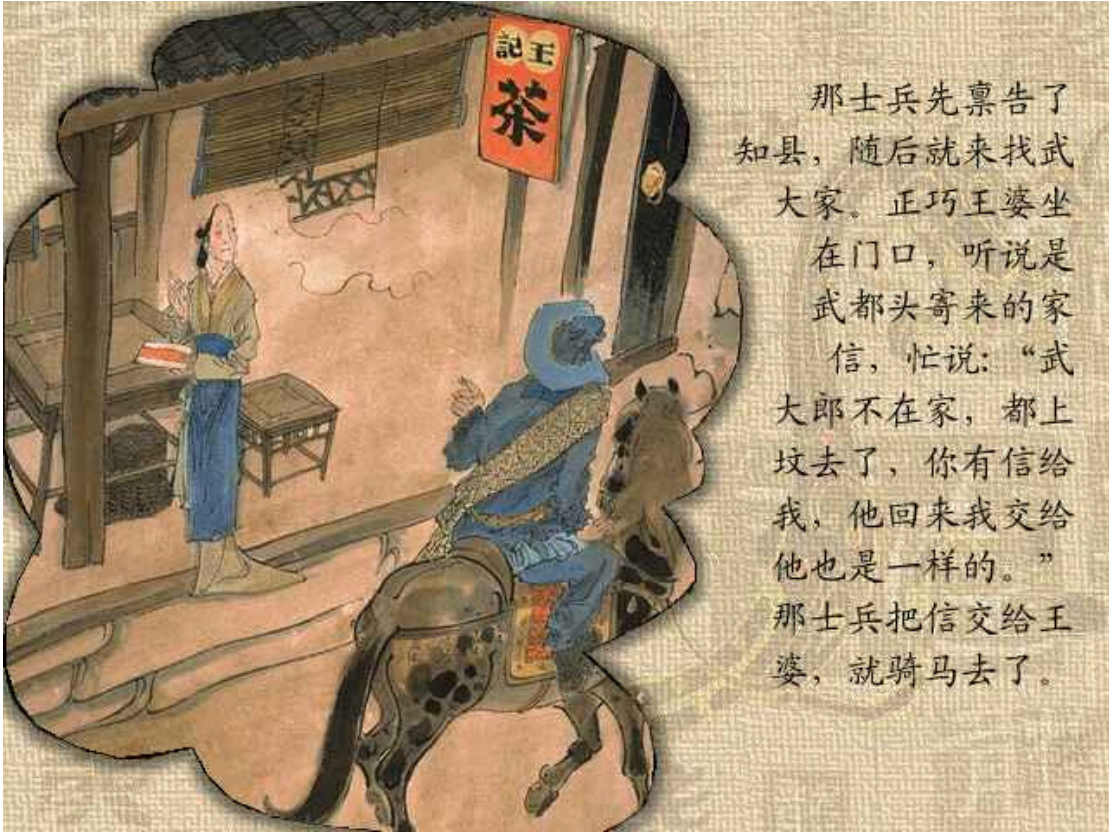 王記
茶
那士兵先禀告了
知县，随后就来找武
大家。正巧王婆坐
在门口，听说是
武都头寄来的家
信，忙说：“武
大郎不在家，都上
坟去了，你有信给
我，他回来我交给
他也是一样的。”
那士兵把信交给王
婆，就骑马去了。